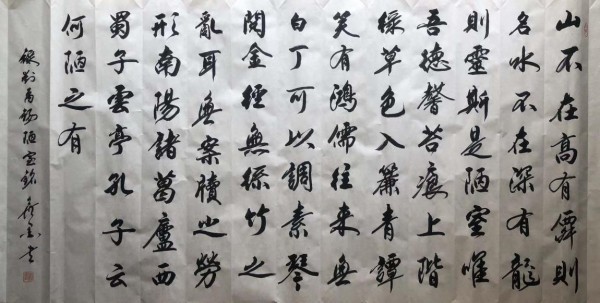 山不在高有僊則
名水不在深有龍
則靈斯是陋室唯
吾德馨苔痕上階
綠草色入簾青譚
笑有鴻儒往来無
白丁可以調素琴
閱金經無絲竹之
亂耳無案牘之勞
形南陽諸葛廬西
蜀子雲亭孔子云
何陋之有
錄劉禹錫陋室銘